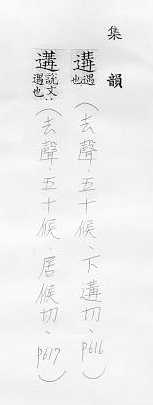 集韻
遘遇也(去聲．五十候、下遘切、p616)
遘說文遇也(去聲．五十候、居候切、p617)